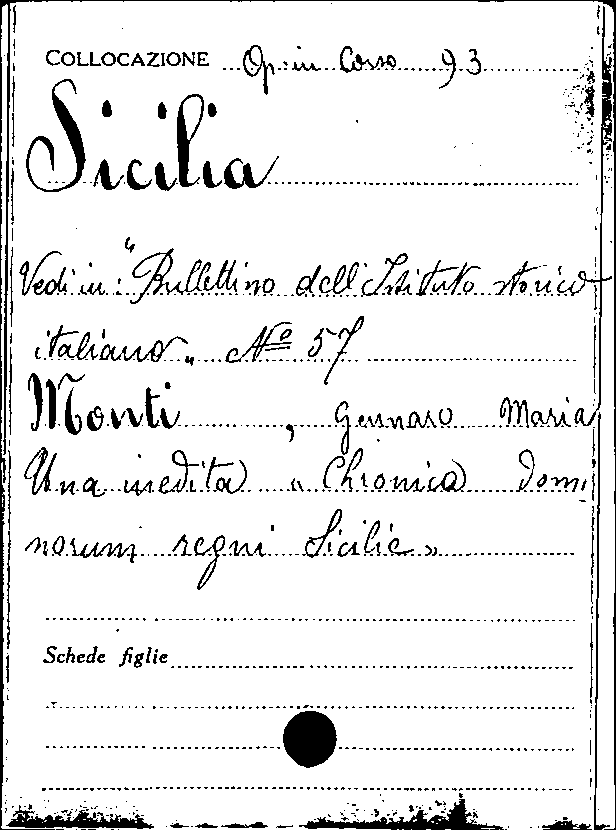 COLLOCAZIONE Op. in Corso 93
Sicilia
Vedi in: "Bullettino dell'Istituto storico
italiano„ Nº 57
Monti, Gennaro Maria
Una inedita « Chronica domi
norum regni Sicilie »
Schede figlie